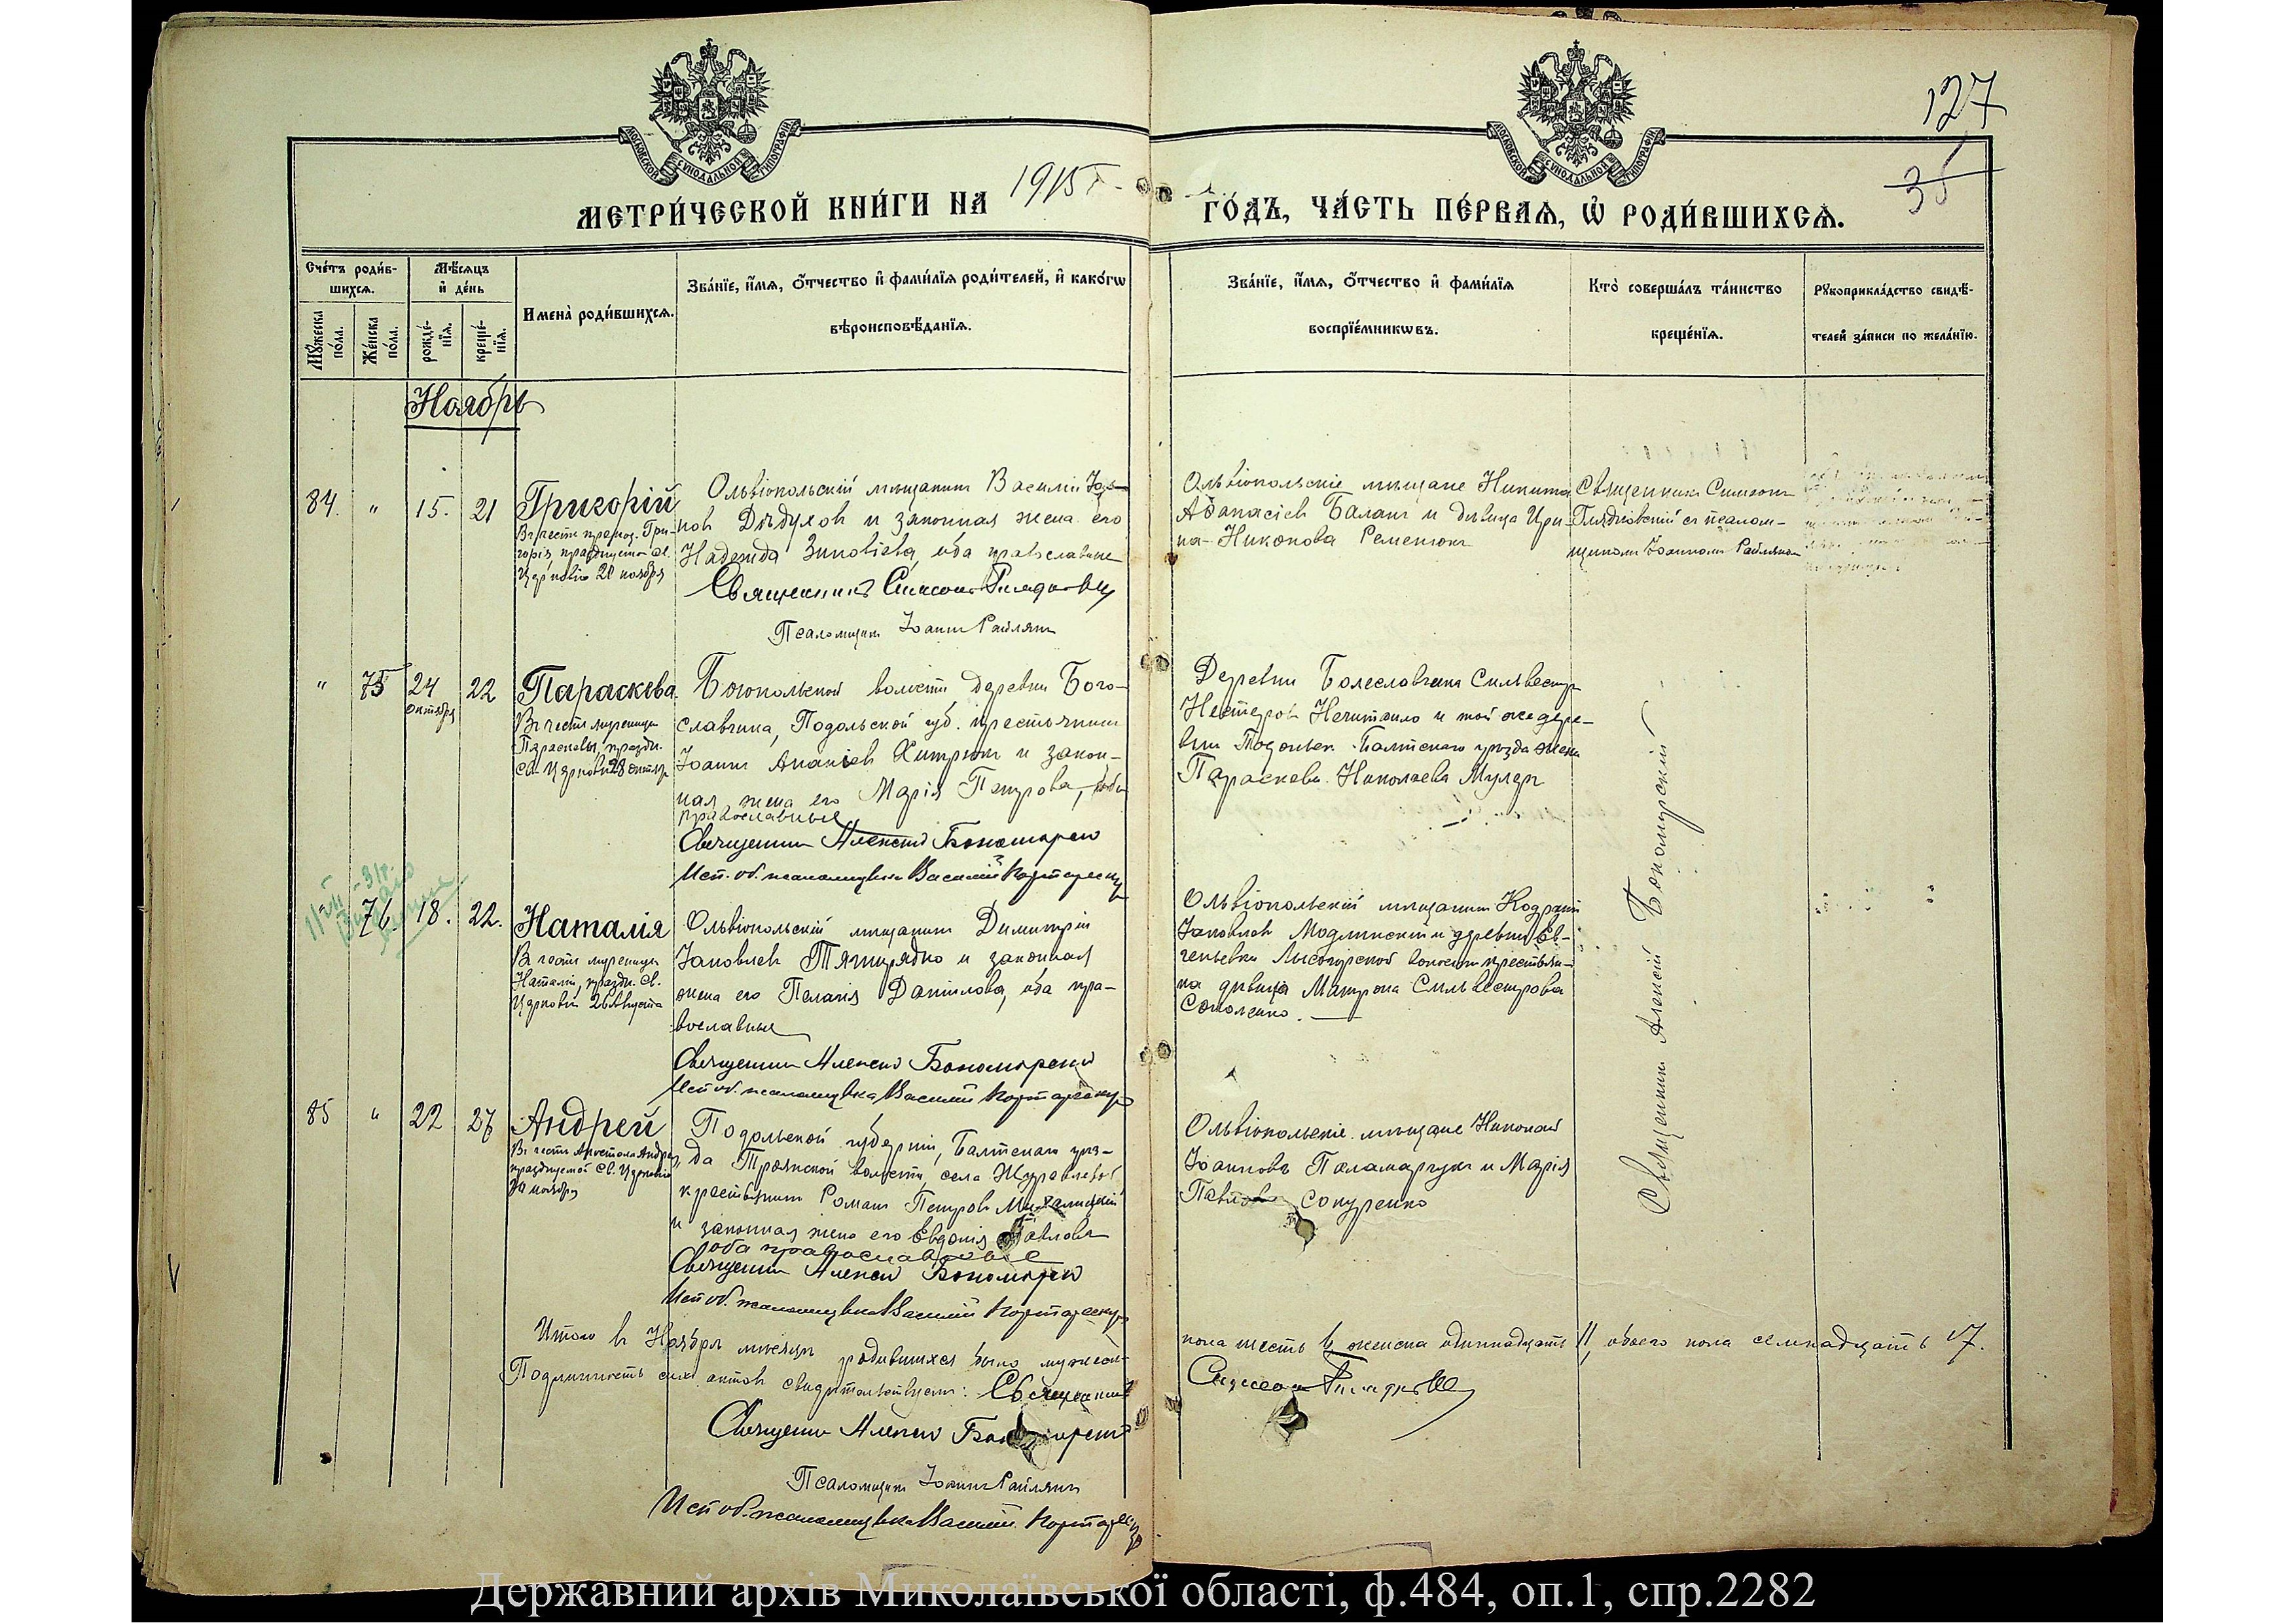 127
35
МОСКОВСКОЙ СѴНОДАЛЬНОЙ ТИПОГРАФІИ
МОСКОВСКОЙ СѴНОДАЛЬНОЙ ТИПОГРАФІИ
МЕТРИ́ЧЕСКОЙ КНИ́ГИ НА 1915 г.
ГО́ДЪ, ЧА́СТЬ ПЕ́РВАѦ, Ѡ҆ РОДИ́ВШИХСѦ.
Сче́тъ роди́в-
шихсѧ.
Мꙋ́жеска по́ла.
Же́нска по́ла.
Мѣ́сѧцъ
и҆ де́нь
рожде́-
нїѧ.
креще́-
нїѧ.
Имена̀ роди́вшихсѧ.
Зва́нїе, и҆́мѧ, ѻ҆́тчество и҆ фами́лїѧ роди́телей, и҆ како́гѡ
вѣроисповѣ́данїѧ.
Зва́нїе, и҆́мѧ, ѻ҆́тчество и҆ фами́лїѧ
воспрїе́мникѡвъ.
Кто̀ соверша́лъ та́инство
креще́нїѧ.
Рꙋкоприкла́дство свидѣ́-
телей за́писи по жела́нїю.
Ноябрь
84. " 15. 21 Григорій
Въ честь препод. Гри-
горія, празднуемаго св.
Церковію 20 ноября
Ольвіопольскій мѣщанинъ Василій
новъ Дѣдухов и законная жена его
Надежда Зиновіева, оба православные
Священникъ Симеонъ Гладковскій
Псаломщикъ Іоаннъ Райлянъ
Ольвіопольскіе мѣщане Никита
Аѳанасіев Баланъ и дѣвица Ири-
на Никонова Ременюкъ
Священникъ Симеонъ
Гладковскій съ псалом-
щикомъ Іоанномъ Райляномъ
" 75 24 октября 22 Параскева
Въ честь мученицы
Параскевы, праздн.
св. Церковью 28 октяб.
Богопольской волости, деревни Бого-
славчика, Подольской губ. крестьянинъ
Іоаннъ Ананіев Хитрюкъ и закон-
ная жена его Марія Петрова, оба
православные
Священникъ Алексій
Исп. об. псаломщика Василій
Деревни Болеславчика Сильвестръ
Нестеров Нечитайло и той же дере-
вни Подольск. Балтскаго уѣзда жена
Параскева Николаева Мулеръ
76. 18. 22. Наталія
Въ честь мученицы
Наталіи, праздн. св.
Церковью 26 Августа
Ольвіопольскій мѣщанинъ Димитрій
Іаковлев Тягнирядно и законная
жена его Пелагія Даніилова, оба пра-
вославные
Священникъ Алексій
Исп. об. псаломщика Василій
Ольвіопольскій мѣщанинъ Кодратъ
Іаковлев Модлинскій и деревни Ев-
геньевки Лысогорской волости крестьян-
ка дѣвица Матрона Сильвестрова
Соколенко.
Священникъ Алексій
85 " 22 27 Андрей
Въ честь Апостола Андрея,
празднуемаго Св. Церковію
30 ноября
Подольской губерніи, Балтскаго уѣз-
да Троянской волости, села Журавлевки
крестьянинъ Романъ Петров
и законная жена его Евдокія Павлова
оба православные
Священникъ Алексій
Исп. об. псаломщика Василій
Ольвіопольскіе мѣщане Николай
Іоанновъ Паламарчукъ и Марія
Павлова Сокуренко
Итого въ Ноябрѣ мѣсяцѣ родившихся было мужеск.
пола шесть 6, женска одиннадцать 11, обоего пола семнадцать 17.
Подлинность сихъ актовъ свидѣтельствуемъ: Священникъ
Симеонъ Гладковскій
Священникъ Алексій
Псаломщикъ Іоаннъ Райлянъ
Исп. об. псаломщика Василій
Державний архів Миколаївської області, ф.484, оп.1, спр.2282